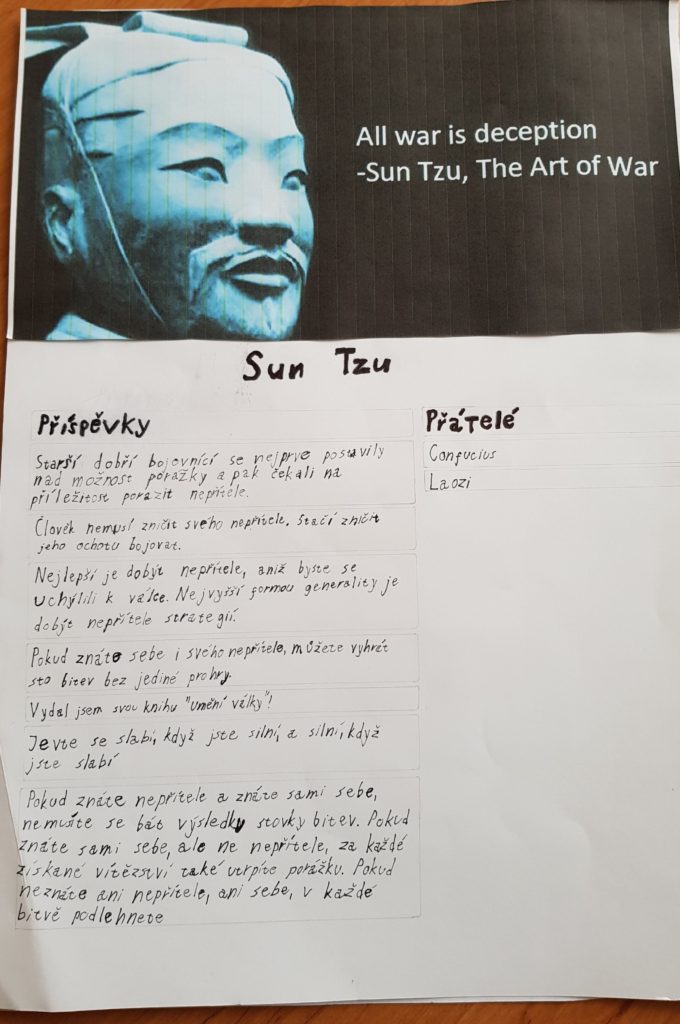 All war is deception
-Sun Tzu, The Art of War
Sun Tzu
Příspěvky
Starší dobří bojovníci se nejprve postavily
nad možnost porážky a pak čekali na
příležitost porazit nepřítele.
Člověk nemusí zničit svého nepřítele. Stačí zničit
jeho ochotu bojovat.
Nejlepší je dobýt nepřítele, aniž byste se
uchýlili k válce. Nejvyšší formou generality je
dobýt nepřítele strategií.
Pokud znáte sebe i svého nepřítele, můžete vyhrát
sto bitev bez jediné prohry.
Vydal jsem svou knihu "Umění války"!
Jevte se slabí, když jste silní, a silní, když
jste slabí
Pokud znáte nepřítele a znáte sami sebe,
nemusíte se bát výsledky stovky bitev. Pokud
znáte sami sebe, ale ne nepřítele, za každé
získané vítězství také utrpíte porážku. Pokud
neznáte ani nepřítele, ani sebe, v každé
bitvě podlehnete
Přátelé
Confucius
Laozi